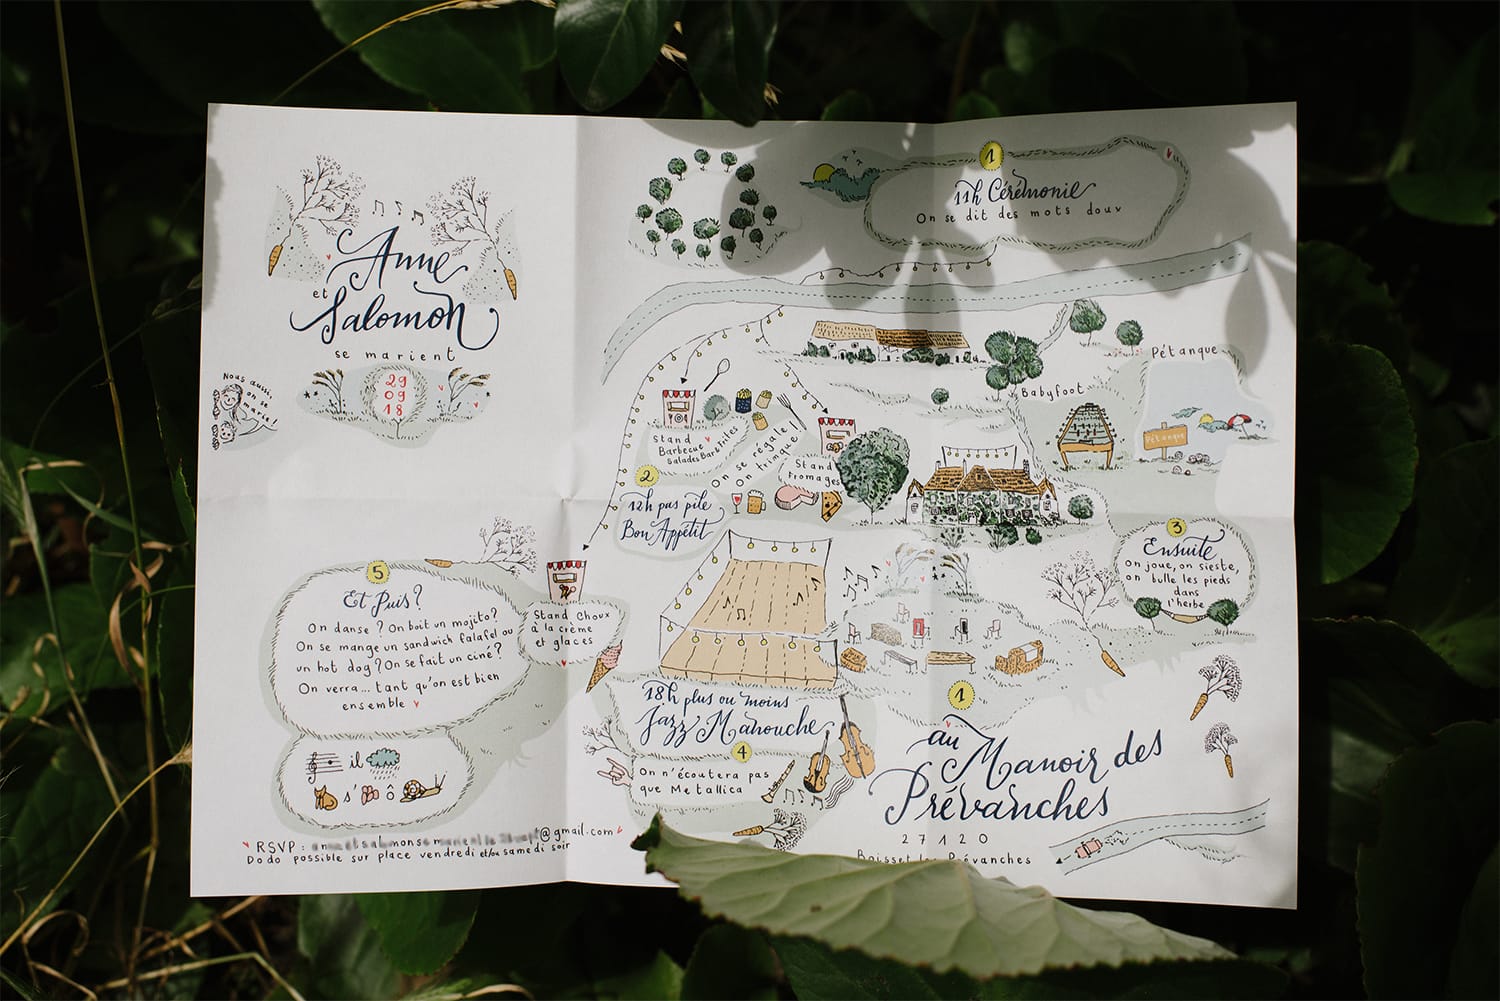 Anne
et
Salomon
se marient
29
09
18
Nous aussi,
on se
marie!
1
11h Cérémonie
On se dit des mots doux
Pétanque
Babyfoot
Pétanque
Stand
Barbecue
Salades Bar & Frites
On se régale!
On trinque!
Stand
Fromages
2
12h pas pile
Bon Appétit
3
Ensuite
On joue, on sieste,
on bulle les pieds
dans
l'herbe
5
Et Puis?
On danse? On boit un mojito?
On se mange un sandwich falafel ou
un hot dog? On se fait un ciné?
On verra... tant qu'on est bien
ensemble
Stand Choux
à la crème
et glaces
il
s' ô
18h plus ou moins
Jazz Manouche
4
On n'écoutera pas
que Metallica
1
au Manoir des
Prévanches
27120
Boisset les Prévanches
RSVP : @gmail.com
Dodo possible sur place vendredi et/ou samedi soir